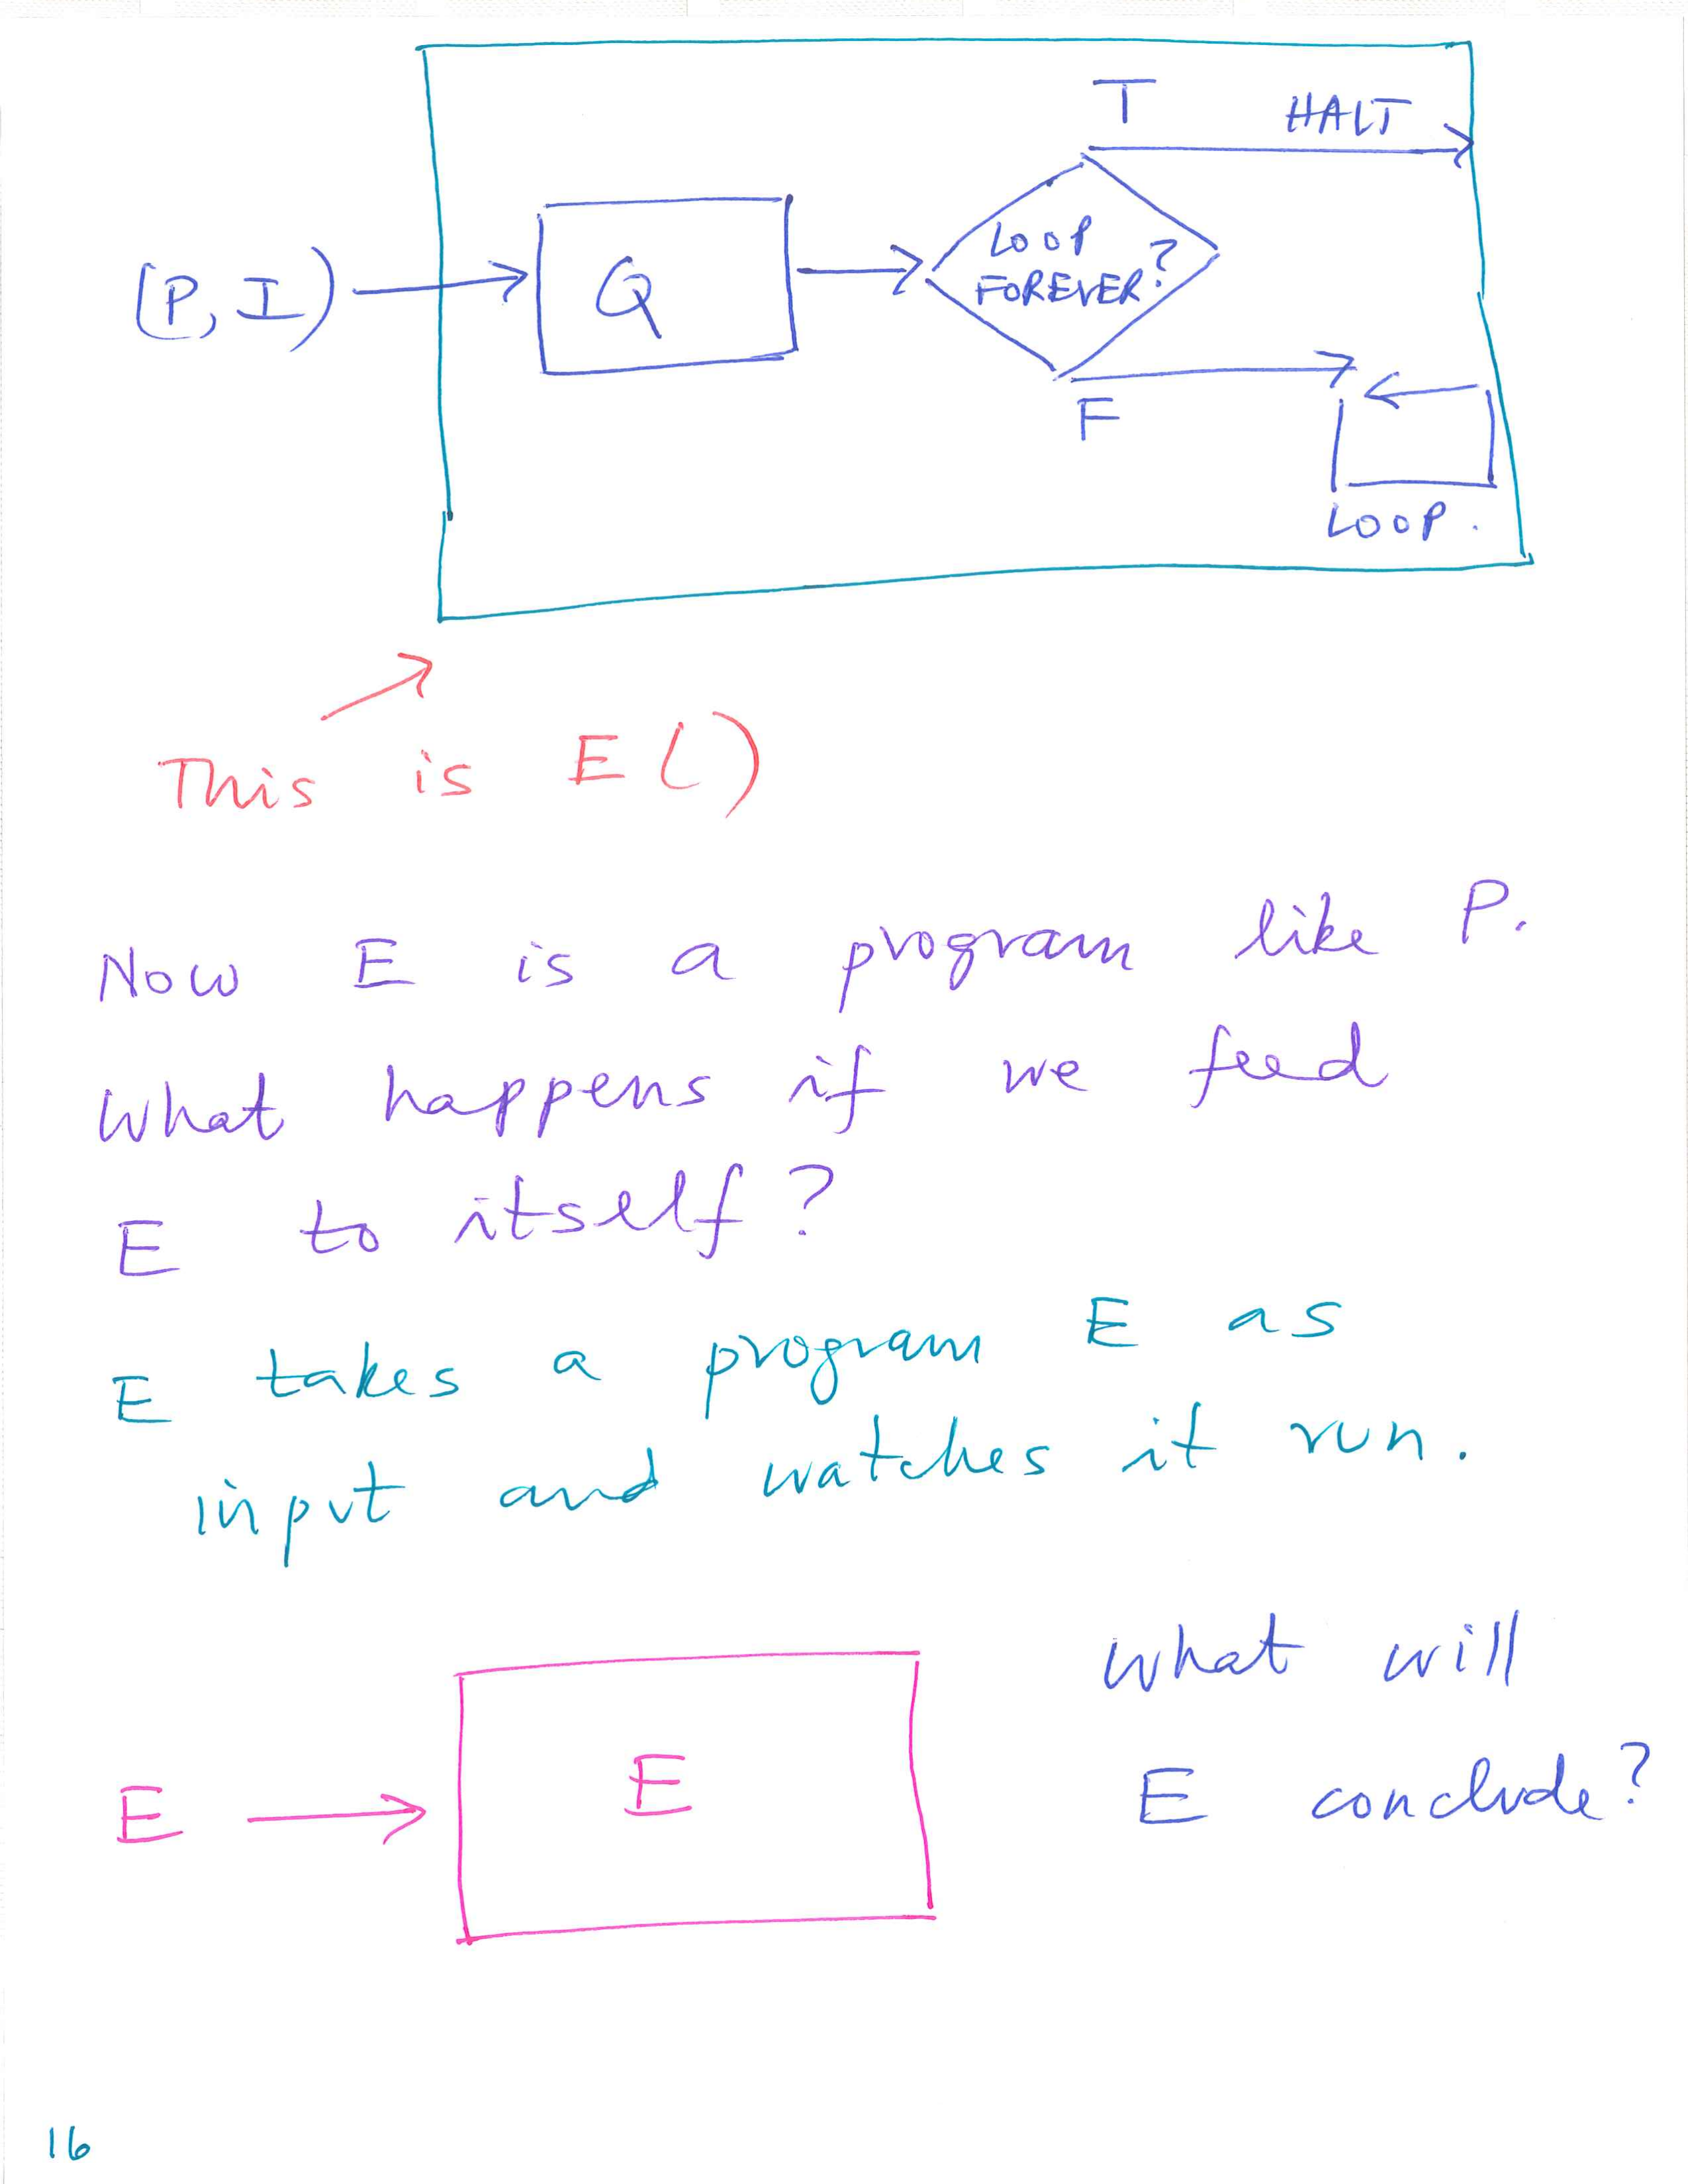 T HALT
LOOP
FOREVER?
(P, I) Q
F
LOOP.
This is E()
Now E is a program like P.
What happens if we feed
E to itself?
E takes a program E as
input and watches it run.
What will
E E
E conclude?
16